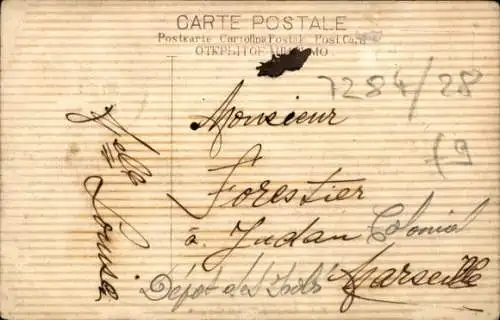 CARTE POSTALE
Postkarte Cartolina Postal Post Card
ОТКРЫТОЕ ПИСЬМО
7284/28
Monsieur
f9
Forestier
à Judan Colonial
Dépot des Isolés Marseille
elle Louisa